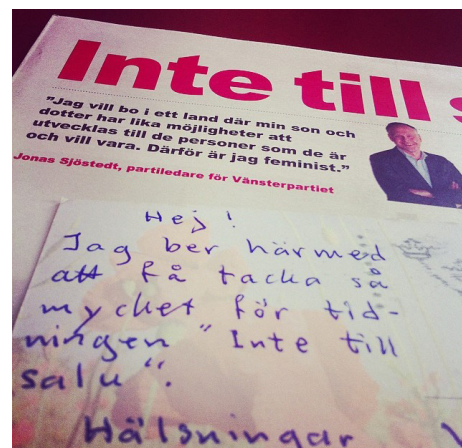 Inte till s
"Jag vill bo i ett land där min son och
dotter har lika möjligheter att
utvecklas till de personer som de är
och vill vara. Därför är jag feminist."
Jonas Sjöstedt, partiledare för Vänsterpartiet
Hej!
Jag ber härmed
att få tacka så
mycket för tid-
ningen "Inte till
salu".
Hälsningar